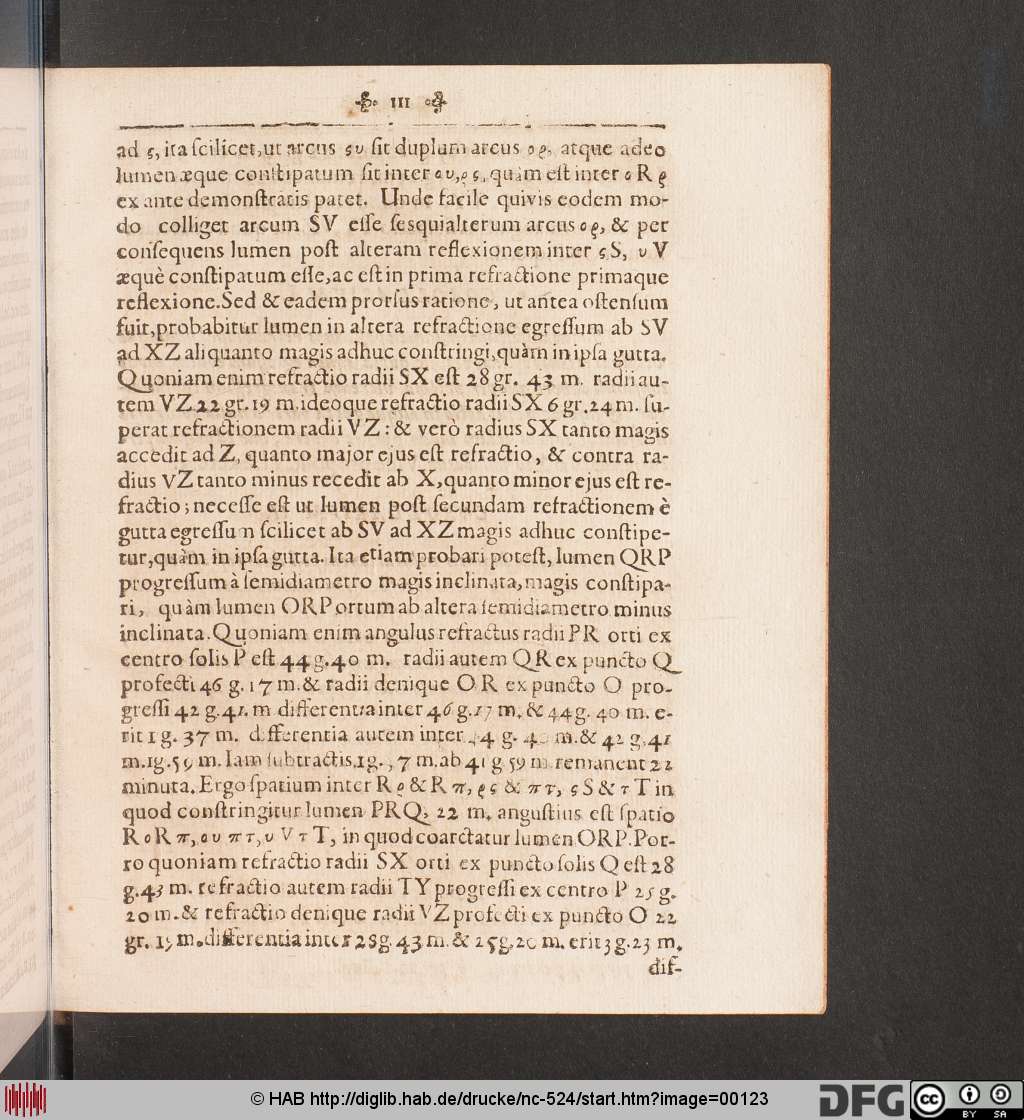 III
ad ς, ita ſcilicet, ut arcus ςυ ſit duplum arcus ορ, atque adeo
lumen æque conſtipatum ſit inter ου, ρς, quàm eſt inter οRρ
ex ante demonſtratis patet. Unde facile quivis eodem mo-
do colliget arcum SV eſſe ſesquialterum arcus ορ, & per
conſequens lumen poſt alteram reflexionem inter ςS, υV
æquè conſtipatum eſſe, ac eſt in prima refractione primaque
reflexione. Sed & eadem prorſus ratione, ut antea oſtenſum
fuit, probabitur lumen in altera refractione egreſſum ab SV
ad XZ aliquanto magis adhuc conſtringi, quàm in ipſa gutta.
Quoniam enim refractio radii SX eſt 28 gr. 43 m. radii au-
tem VZ 22 gr. 19 m. ideoque refractio radii SX 6 gr. 24 m. ſu-
perat refractionem radii VZ: & verò radius SX tanto magis
accedit ad Z, quanto major ejus eſt refractio, & contra ra-
dius VZ tanto minus recedit ab X, quanto minor ejus eſt re-
fractio; neceſſe eſt ut lumen poſt ſecundam refractionem è
gutta egreſſum ſcilicet ab SV ad XZ magis adhuc conſtipe-
tur, quàm in ipſa gutta. Ita etiam probari poteſt, lumen QRP
progreſſum à ſemidiametro magis inclinata, magis conſtipa-
ri, quàm lumen ORP ortum ab altera ſemidiametro minus
inclinata. Quoniam enim angulus refractus radii PR orti ex
centro ſolis P eſt 44 g. 40 m. radii autem QR ex puncto Q
profecti 46 g. 17 m. & radii denique OR ex puncto O pro-
greſſi 42 g. 41. m. differentia inter 46 g. 17 m. & 44 g. 40 m. e-
rit 1 g. 37 m. differentia autem inter 44 g. 40 m. & 42 g. 41
m. 1g. 59 m. Iam ſubtractis 1g. 37 m. ab 41 g 59 m. remanent 22
minuta. Ergo ſpatium inter Rρ & Rπ, ρς & πτ, ςS & τT in
quod conſtringitur lumen PRQ, 22 m. anguſtius eſt ſpatio
RοRπ, ου πτ, υVτT, in quod coarctatur lumen ORP. Por-
ro quoniam refractio radii SX orti ex puncto ſolis Q eſt 28
g. 43 m. refractio autem radii TY progreſſi ex centro P 25 g.
20 m. & refractio denique radii VZ profecti ex puncto O 22
gr. 19 m. differentia inter 28g. 43 m. & 25 g. 20 m. erit 3 g. 23 m.
dif-
© HAB http://diglib.hab.de/drucke/nc-524/start.htm?image=00123
DFG
cc
BY SA